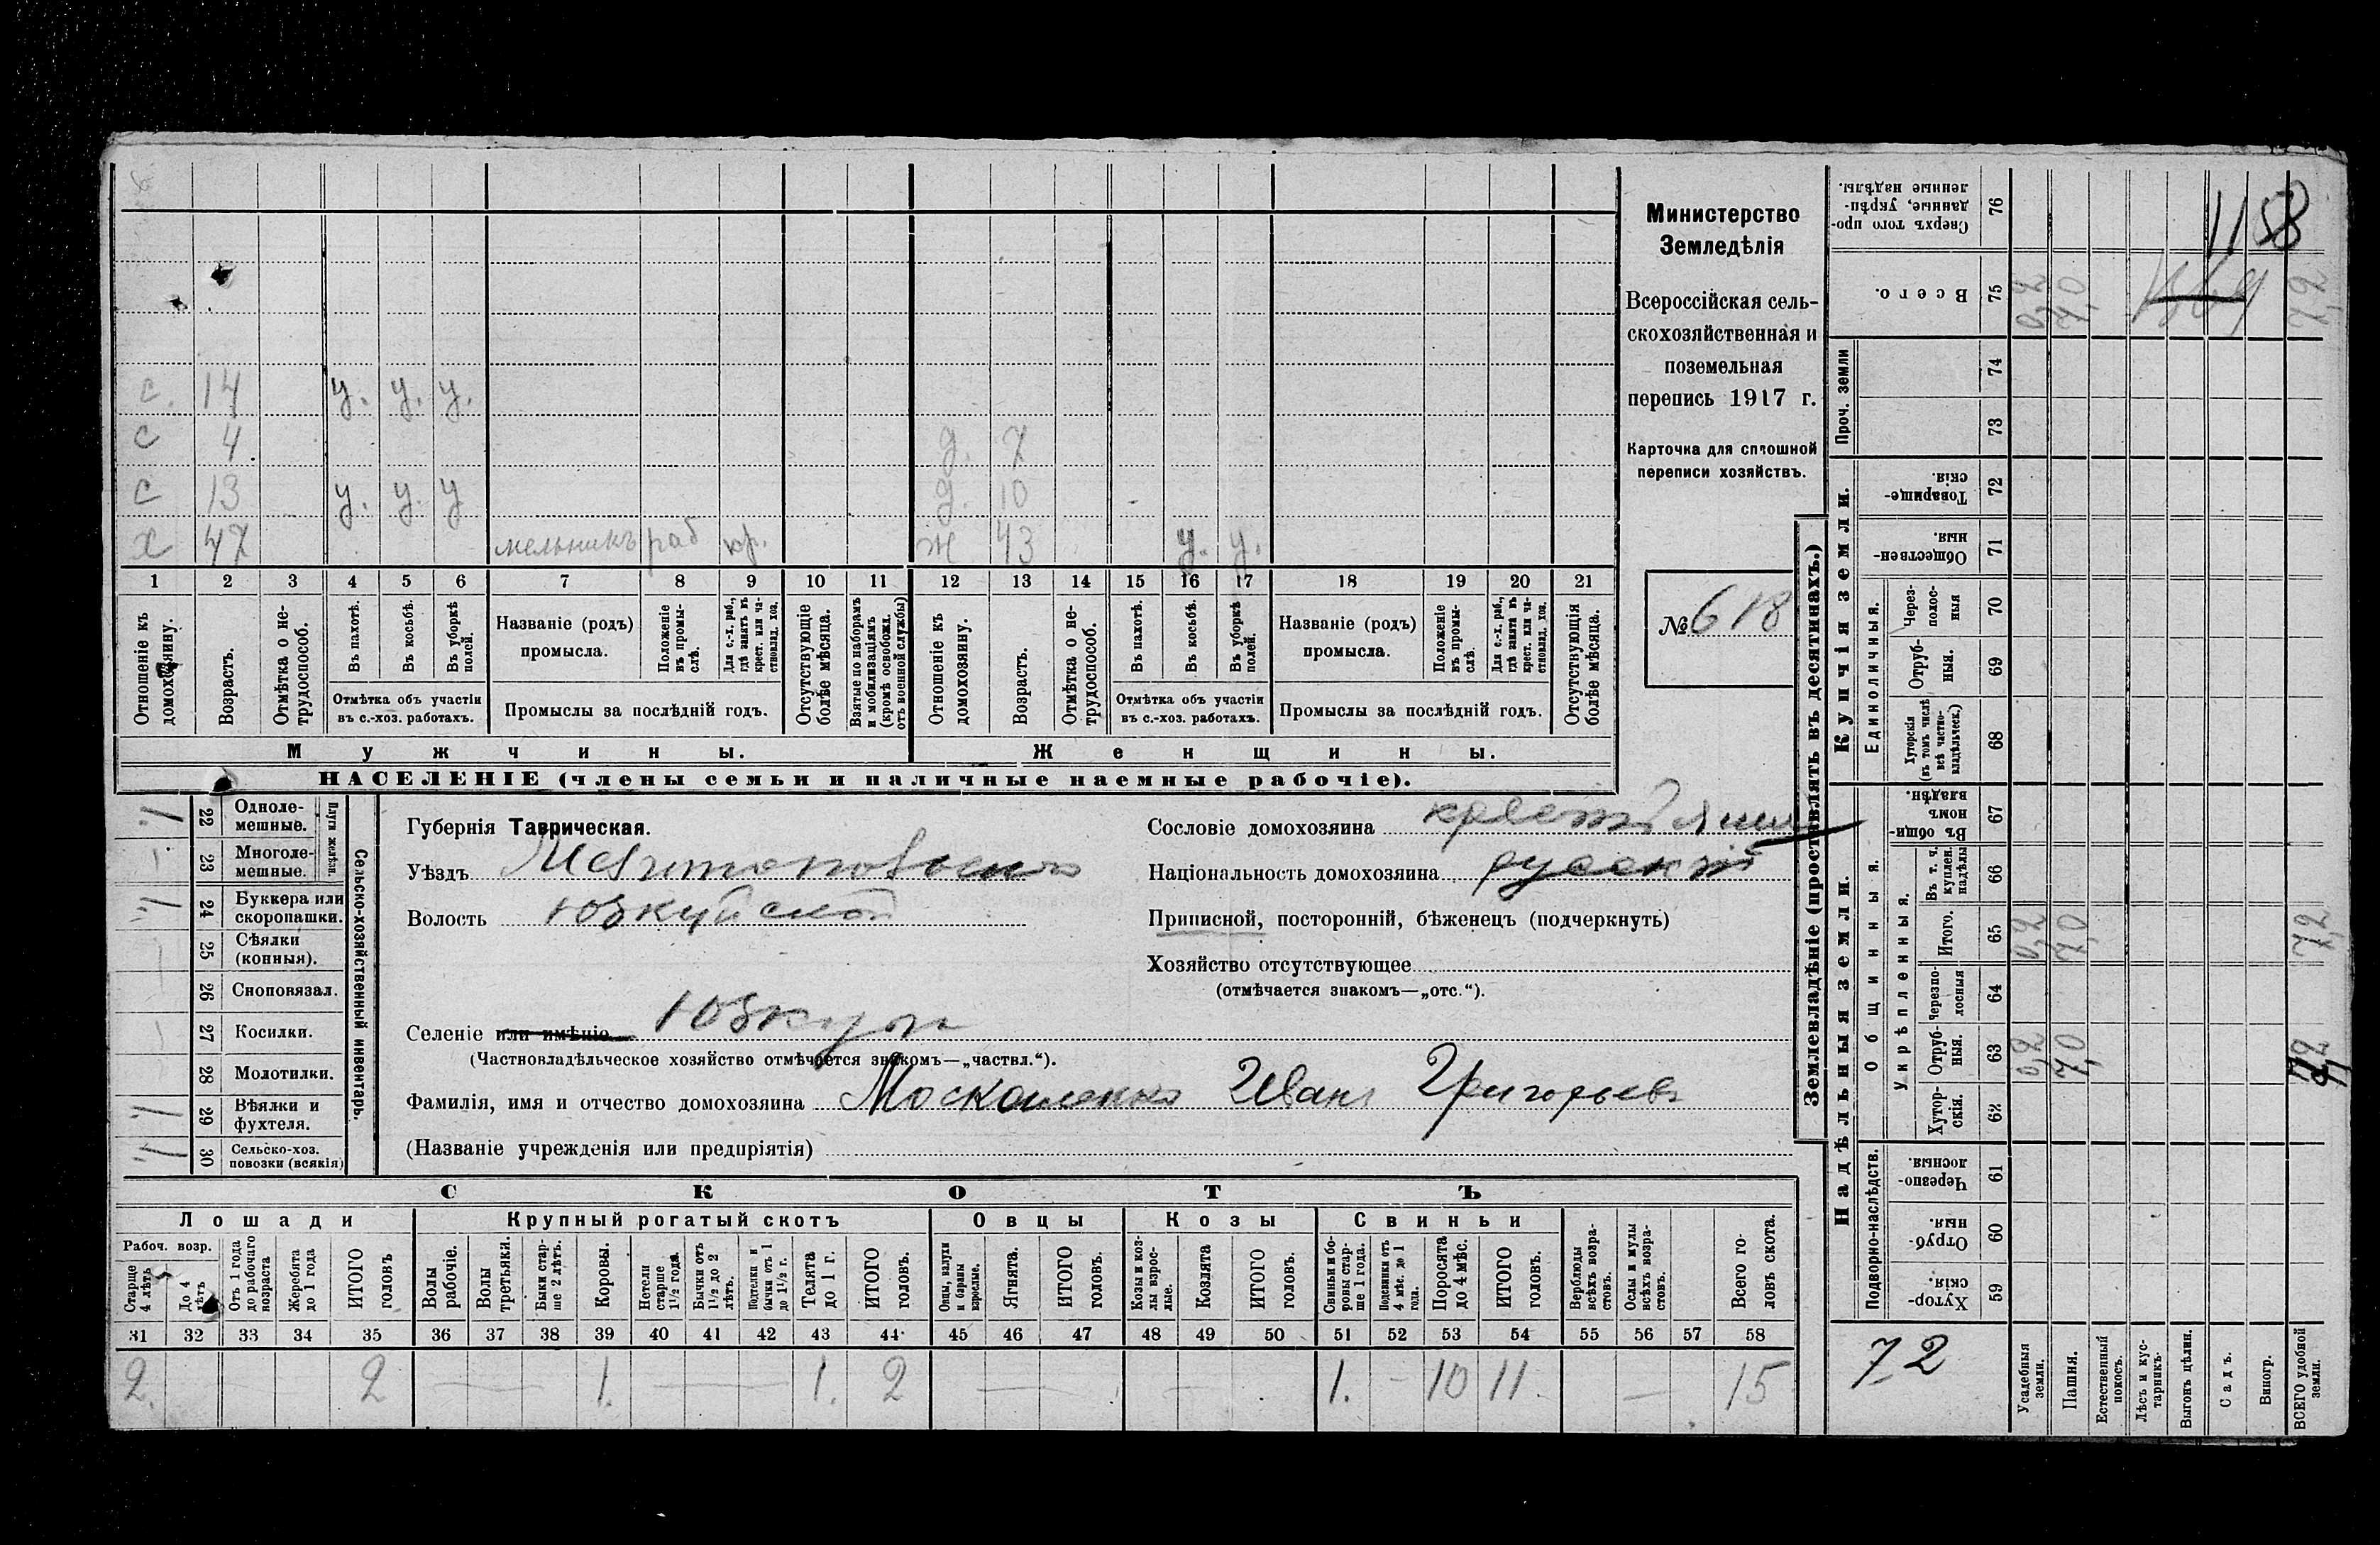 с. 14 у. у. у.
с 4 д. 7
с 13 у. у. у д. 10
х 47 мельникъ раб ж 43 у. у.
1 2 3 4 5 6 7 8 9 10 11 12 13 14 15 16 17 18 19 20 21
Отношеніе къ домохозяину.
Возрастъ.
Отмѣтка о нетрудоспособ.
Въ пахотѣ.
Въ косьбѣ.
Въ уборкѣ полей.
Отмѣтка объ участіи въ с.-хоз. работахъ.
Названіе (родъ) промысла.
Положеніе въ промыслѣ.
Для с.-х. раб., гдѣ занятъ въ крест. или частновлад. хоз.
Промыслы за послѣдній годъ.
Отсутствующіе болѣе мѣсяца.
Взятые по наборамъ и мобилизаціямъ (кромѣ освобожд. отъ военной службы)
Отношеніе къ домохозяину.
Возрастъ.
Отмѣтка о нетрудоспособ.
Въ пахотѣ.
Въ косьбѣ.
Въ уборкѣ полей.
Отмѣтка объ участіи въ с.-хоз. работахъ.
Названіе (родъ) промысла.
Положеніе въ промыслѣ.
Для с.-х. раб., гдѣ занята въ крест. или частновлад. хоз.
Промыслы за послѣдній годъ.
Отсутствующія болѣе мѣсяца.
Мужчины. Женщины.
НАСЕЛЕНІЕ (члены семьи и наличные наемные рабочіе).
Министерство
Земледѣлія
Всероссійская сель-
скохозяйственная и
поземельная
перепись 1917 г.
Карточка для сплошной
переписи хозяйствъ.
№ 618
22 Однолемешные.
23 Многолемешные.
Плуги желѣзн.
24 Буккера или скоропашки.
25 Сѣялки (конныя).
26 Сноповязал.
27 Косилки.
28 Молотилки.
29 Вѣялки и фухтеля.
30 Сельско-хоз. повозки (всякія)
Сельско-хозяйственный инвентарь.
Губернія Таврическая.
Уѣздъ Мелитопольскій
Волость Юзкуйской
Селеніе или имѣніе Юзкуи
(Частновладѣльческое хозяйство отмѣчается знакомъ—„частвл.“).
Фамилія, имя и отчество домохозяина Москаленко Иванъ Григорьевъ
(Названіе учрежденія или предпріятія)
Сословіе домохозяина крестьянинъ
Національность домохозяина русскій
Приписной, посторонній, бѣженецъ (подчеркнуть)
Хозяйство отсутствующее
(отмѣчается знакомъ—„отс.“).
СКОТЪ
Лошади Крупный рогатый скотъ Овцы Козы Свиньи
Рабоч. возр.
Старше 4 лѣтъ
До 4 лѣтъ
Отъ 1 года до рабочаго возраста
Жеребята до 1 года
ИТОГО головъ
Волы рабочіе.
Волы третьяки.
Быки старше 2 лѣтъ.
Коровы.
Нетели старше 1½ года.
Бычки отъ 1½ до 2 лѣтъ.
Подтелки и бычки отъ 1 до 1½ г.
Телята до 1 г.
ИТОГО головъ.
Овцы, валухи и бараны взрослые.
Ягнята.
ИТОГО головъ.
Козы и козлы взрослые.
Козлята
ИТОГО головъ.
Свиньи и боровы старше 1 года.
Подсвинки отъ 4 мѣс. до 1 года.
Поросята до 4 мѣс.
ИТОГО головъ.
Верблюды всѣхъ возрастовъ.
Ослы и мулы всѣхъ возрастовъ.
Всего головъ скота.
31 32 33 34 35 36 37 38 39 40 41 42 43 44 45 46 47 48 49 50 51 52 53 54 55 56 57 58
2. 2 — 1. — 1. 2 — — 1. - 10 11. — 15
Землевладѣніе (проставлять въ десятинахъ.)
Надѣльныя земли.
Купчія земли.
Проч. земли
Подворно-наслѣдств.
Общинныя.
Укрѣпленныя.
Единоличныя.
76 Сверхъ того проданные, укрѣпленные надѣлы.
75 Всего. 0,2 7,0 7,2
74
73
72 Товарищескія.
71 Общественныя.
70 Черезполосныя
69 Отрубныя.
68 Хуторскія (въ томъ числѣ всѣ частновладѣльческ.)
67 Въ общиномъ владѣн.
66 Въ т. ч. куплен. надѣлы
65 Итого. 0,2 7,0 7,2
64 Черезполосныя
63 Отрубныя. 0,2 7,0 7,2
62 Хуторскія.
61 Черезполосныя.
60 Отрубныя.
59 Хуторскія.
Усадебныя земли.
Пашня.
Естественный покосъ.
Лѣсъ и кустарникъ.
Выгонъ цѣлин.
Садъ.
Виногр.
ВСЕГО удобной земли.
1158
72